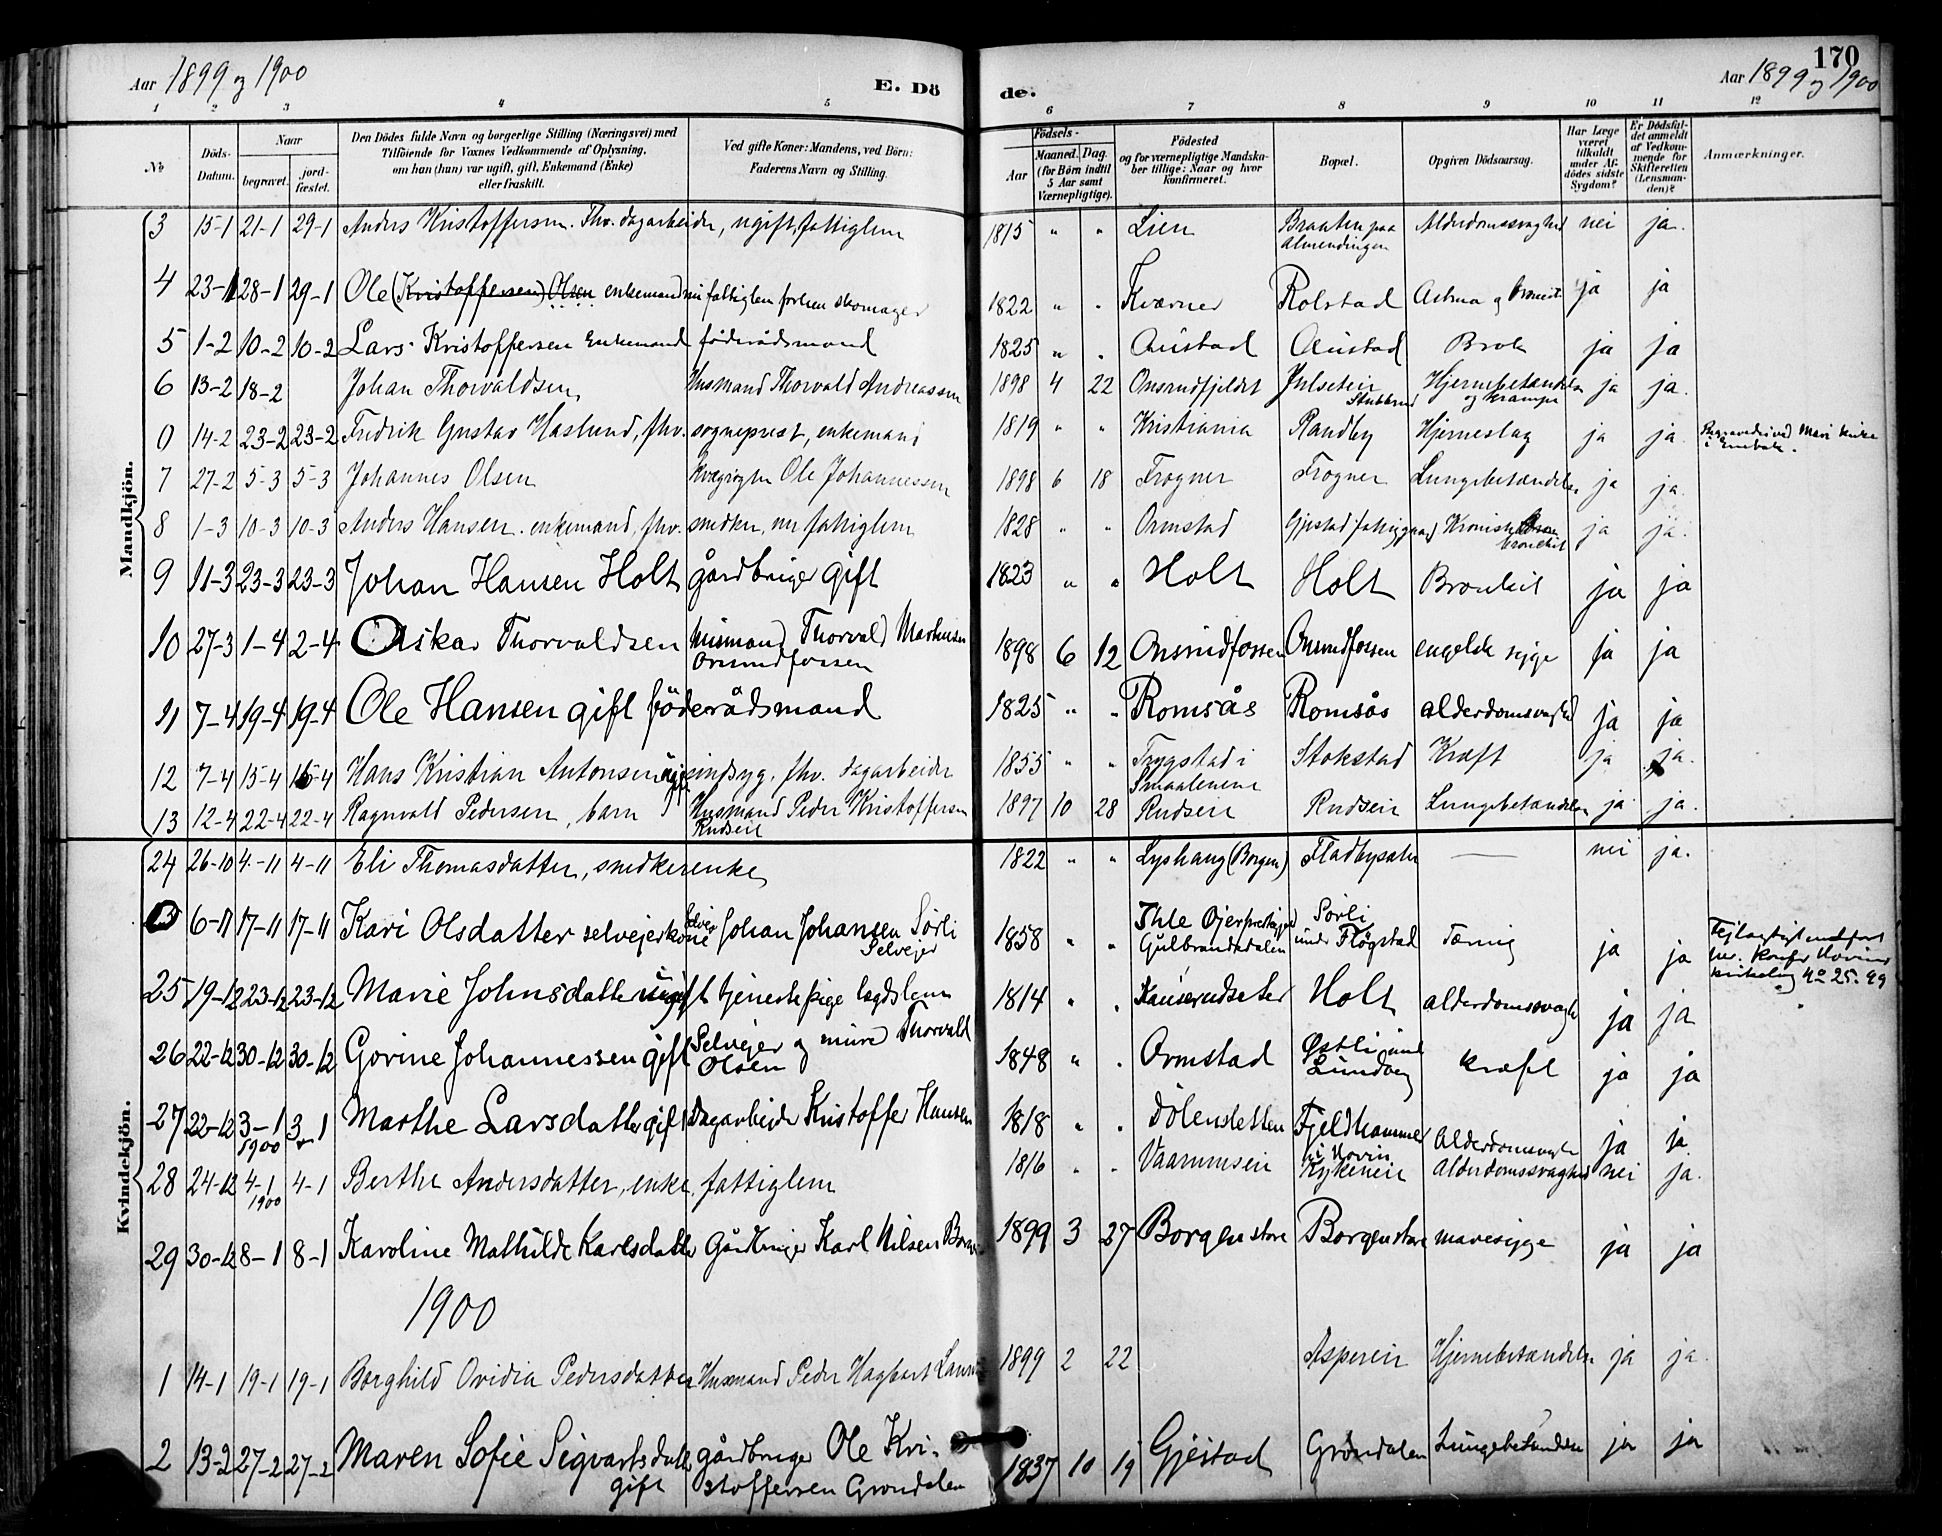 170
Aar 1899 og 1900 E. Dö de. Aar 1899 og 1900
1 2 3 4 5 6 7 8 9 10 11 12
No Döds-Datum. Naar begravet. jord-fæstet. Den Dödes fulde Navn og borgerlige Stilling (Næringsvei) med Tilföiende for Voxnes Vedkommende af Oplysning, om han (hun) var ugift, gift, Enkemand (Enke) eller fraskilt. Ved gifte Koner: Mandens, ved Börn: Faderens Navn og Stilling. Födsels- Aar Maaned. Dag. (for Börn indtil 5 Aar samt Værnepligtige). Födested og for værnepligtige Mandska-ber tillige: Naar og hvor konfirmeret. Bopæl. Opgiven Dödsaarsag. Har Læge været tilkaldt under Af-dödes sidste Sygdom? Er Dödsfal-det anmeldt af Vedkom-mende for Skifteretten (Lensman-den)? Anmærkninger.
Mandkjön.
3 15-1 21-1 29-1 Anders Kristoffersen. Fhv. dagarbeider, ugift, fattiglem 1815 " " Lien Braaten paa Almendingen Alderdomssvaghed nei ja.
4 23-1 28-1 29-1 Ole (Kristoffersen) Olsen enkemand nu fattiglem forhen skomager 1822 " " Kværner Rolstad Astma og ja ja
5 1-2 10-2 10-2 Lars Kristoffersen Enkemand föderådsmand 1825 " " Austad Austad Brok ja ja
6 13-2 18-2 Johan Thorvaldsen Husmand Thorvald Andreassen 1898 4 22 Onsrudfjeldet Julseteir Stubbrud Hjernebetændelse og krampe ja ja.
0 14-2 23-2 23-2 Fredrik Gustav Haslund, fhv. sogneprest, enkemand 1819 " " Kristiania Randby Hjerneslag ja ja. Begravedes ved Mari kirke i Enebak.
7 27-2 5-3 5-3 Johannes Olsen Kvægrögter Ole Johannessen 1898 6 18 Frogner Frogner Lungebetændelse ja ja.
8 1-3 10-3 10-3 Anders Hansen. enkemand, fhv. snedker, nu fattiglem 1828 " " Ormstad Gjestad fattiggaard Kronisk bronchit ja ja.
9 11-3 23-3 23-3 Johan Hansen Holt gårdbruger gift 1823 " " Holt Holt Bronkit ja ja
10 27-3 1-4 2-4 Oskar Thorvaldsen husmand Thorvald Markusen Onsrudfossen 1898 6 12 Onsrudfossen Onsrudfossen engelsk syge ja ja
11 7-4 19-4 19-4 Ole Hansen gift föderådsmand 1825 " " Romsås Romsås alderdomsvaghed ja ja
12 7-4 15-4 15-4 Hans Kristian Antonsen ugift sindsyg, fhv. dagarbeider 1855 " " Trygstad i Smaalenene Stokstad Kræft ja ja.
13 12-4 22-4 22-4 Ragnvald Pedersen, barn Husmand Peder Kristoffersen Rudseir 1897 10 28 Rudseir Rudseir Lungebetændelse ja ja.
Kvindekjön.
24 26-10 4-11 4-11 Eli Thomasdatter, snedkerenke 1822 " " Lyshaug (Borgen) Fladbysæter — nei ja.
0 6-11 17-11 17-11 Kari Olsdatter selveierkone Selveier Johan Johansen Sörli Selveier 1858 " " Ihle Öjer prestegjeld Gulbrandsdalen Sörli under Flögstad Tæring ja ja Fejlagtigt indfört her. Konfr Hovins kirkebog No 25. 99
25 19-12 23-12 23-12 Marie Johnsdatter ugift tjenestepige lægdslem 1814 " " Kauserudseter Holt alderdomssvaghed ja ja
26 22-12 30-12 30-12 Gorine Johannessen gift Selveier og murer Thorvald Olsen 1848 " " Ormstad Østli und Lundby kræft ja ja
27 22-12 3-1 1900 3-1 Marthe Larsdatter gift Dagarbeider Kristoffer Hansen 1818 " " Dölensletten Fjeldhammer i Hovin Alderdomsvaghed ja ja
28 24-12 4-1 1900 4-1 Berthe Andersdatter, enke, fattiglem 1816 " " Vaarumseir Kykeneir Alderdomssvaghed nei ja.
29 30-12 8-1 8-1 Karoline Mathilde Karlsdatter Gårdbruger Karl Nilsen 1899 3 27 Borgen store Borgen store mavesyge ja ja
1900
1 14-1 19-1 19-1 Borghild Ovidia Pedersdatter Husmand Peder Hagbart 1899 2 22 Aspeseir Hjernebetændelse ja ja.
2 13-2 27-2 27-2 Maren Sofie Sigvartsdatter gift gårdbruger Ole Kri-stoffersen Gröndalen 1837 10 19 Gjestad Gröndalen Lungebetændelse ja ja